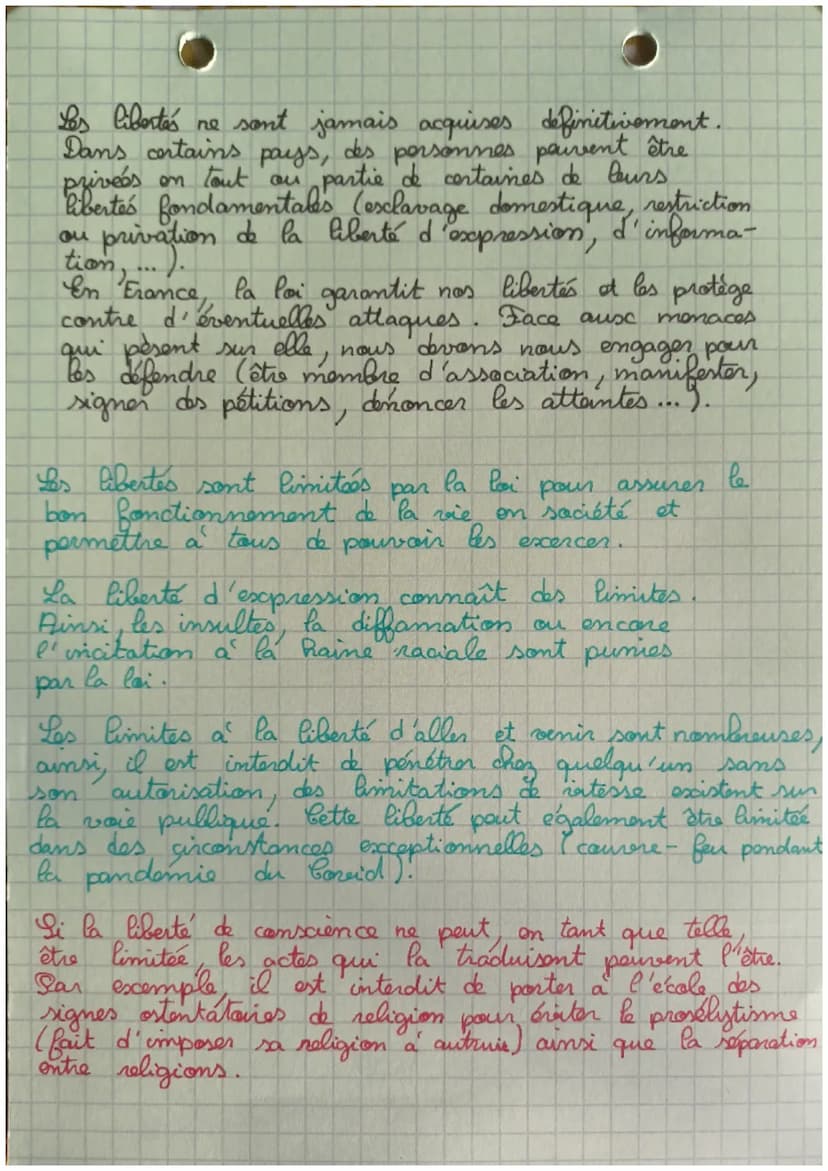 Les libertés ne sont jamais acquises définitivement.
Dans certains pays, des personnes peuvent être
privées en tout ou partie de certaines de leurs
libertés fondamentales (esclavage domestique, restriction
ou privation de la liberté d'expression, d'informa-
tion, ... ).
En France, la loi garantit nos libertés et les protège
contre d'éventuelles attaques. Face aux menaces
qui pèsent sur elle, nous devons nous engager pour
les défendre (être membre d'association, manifester,
signer des pétitions, dénoncer les atteintes ... ).
Les libertés sont limitées par la loi pour assurer le
bon fonctionnement de la vie en société et
permettre à tous de pouvoir les excercer.
La liberté d'expression connaît des limites.
Ainsi, les insultes, la diffamation ou encore
l'incitation à la haine raciale sont punies
par la loi.
Les limites à la liberté d'aller et venir sont nombreuses,
ainsi, il est interdit de pénétrer chez quelqu'un sans
son autorisation, des limitations de vitesse existent sur
la voie pullique. Cette liberté peut également être limitée
dans des circonstances exceptionnelles (couvre-feu pendant
la pandémie du Covid).
Si la liberté de conscience ne peut, en tant que telle,
être limitée, les actes qui la traduisent peuvent l'être.
Par exemple, il est interdit de porter à l'école des
signes ostentatoires de religion pour éviter le prosélytisme
(fait d'imposer sa religion à autruie) ainsi que la séparation
entre religions.